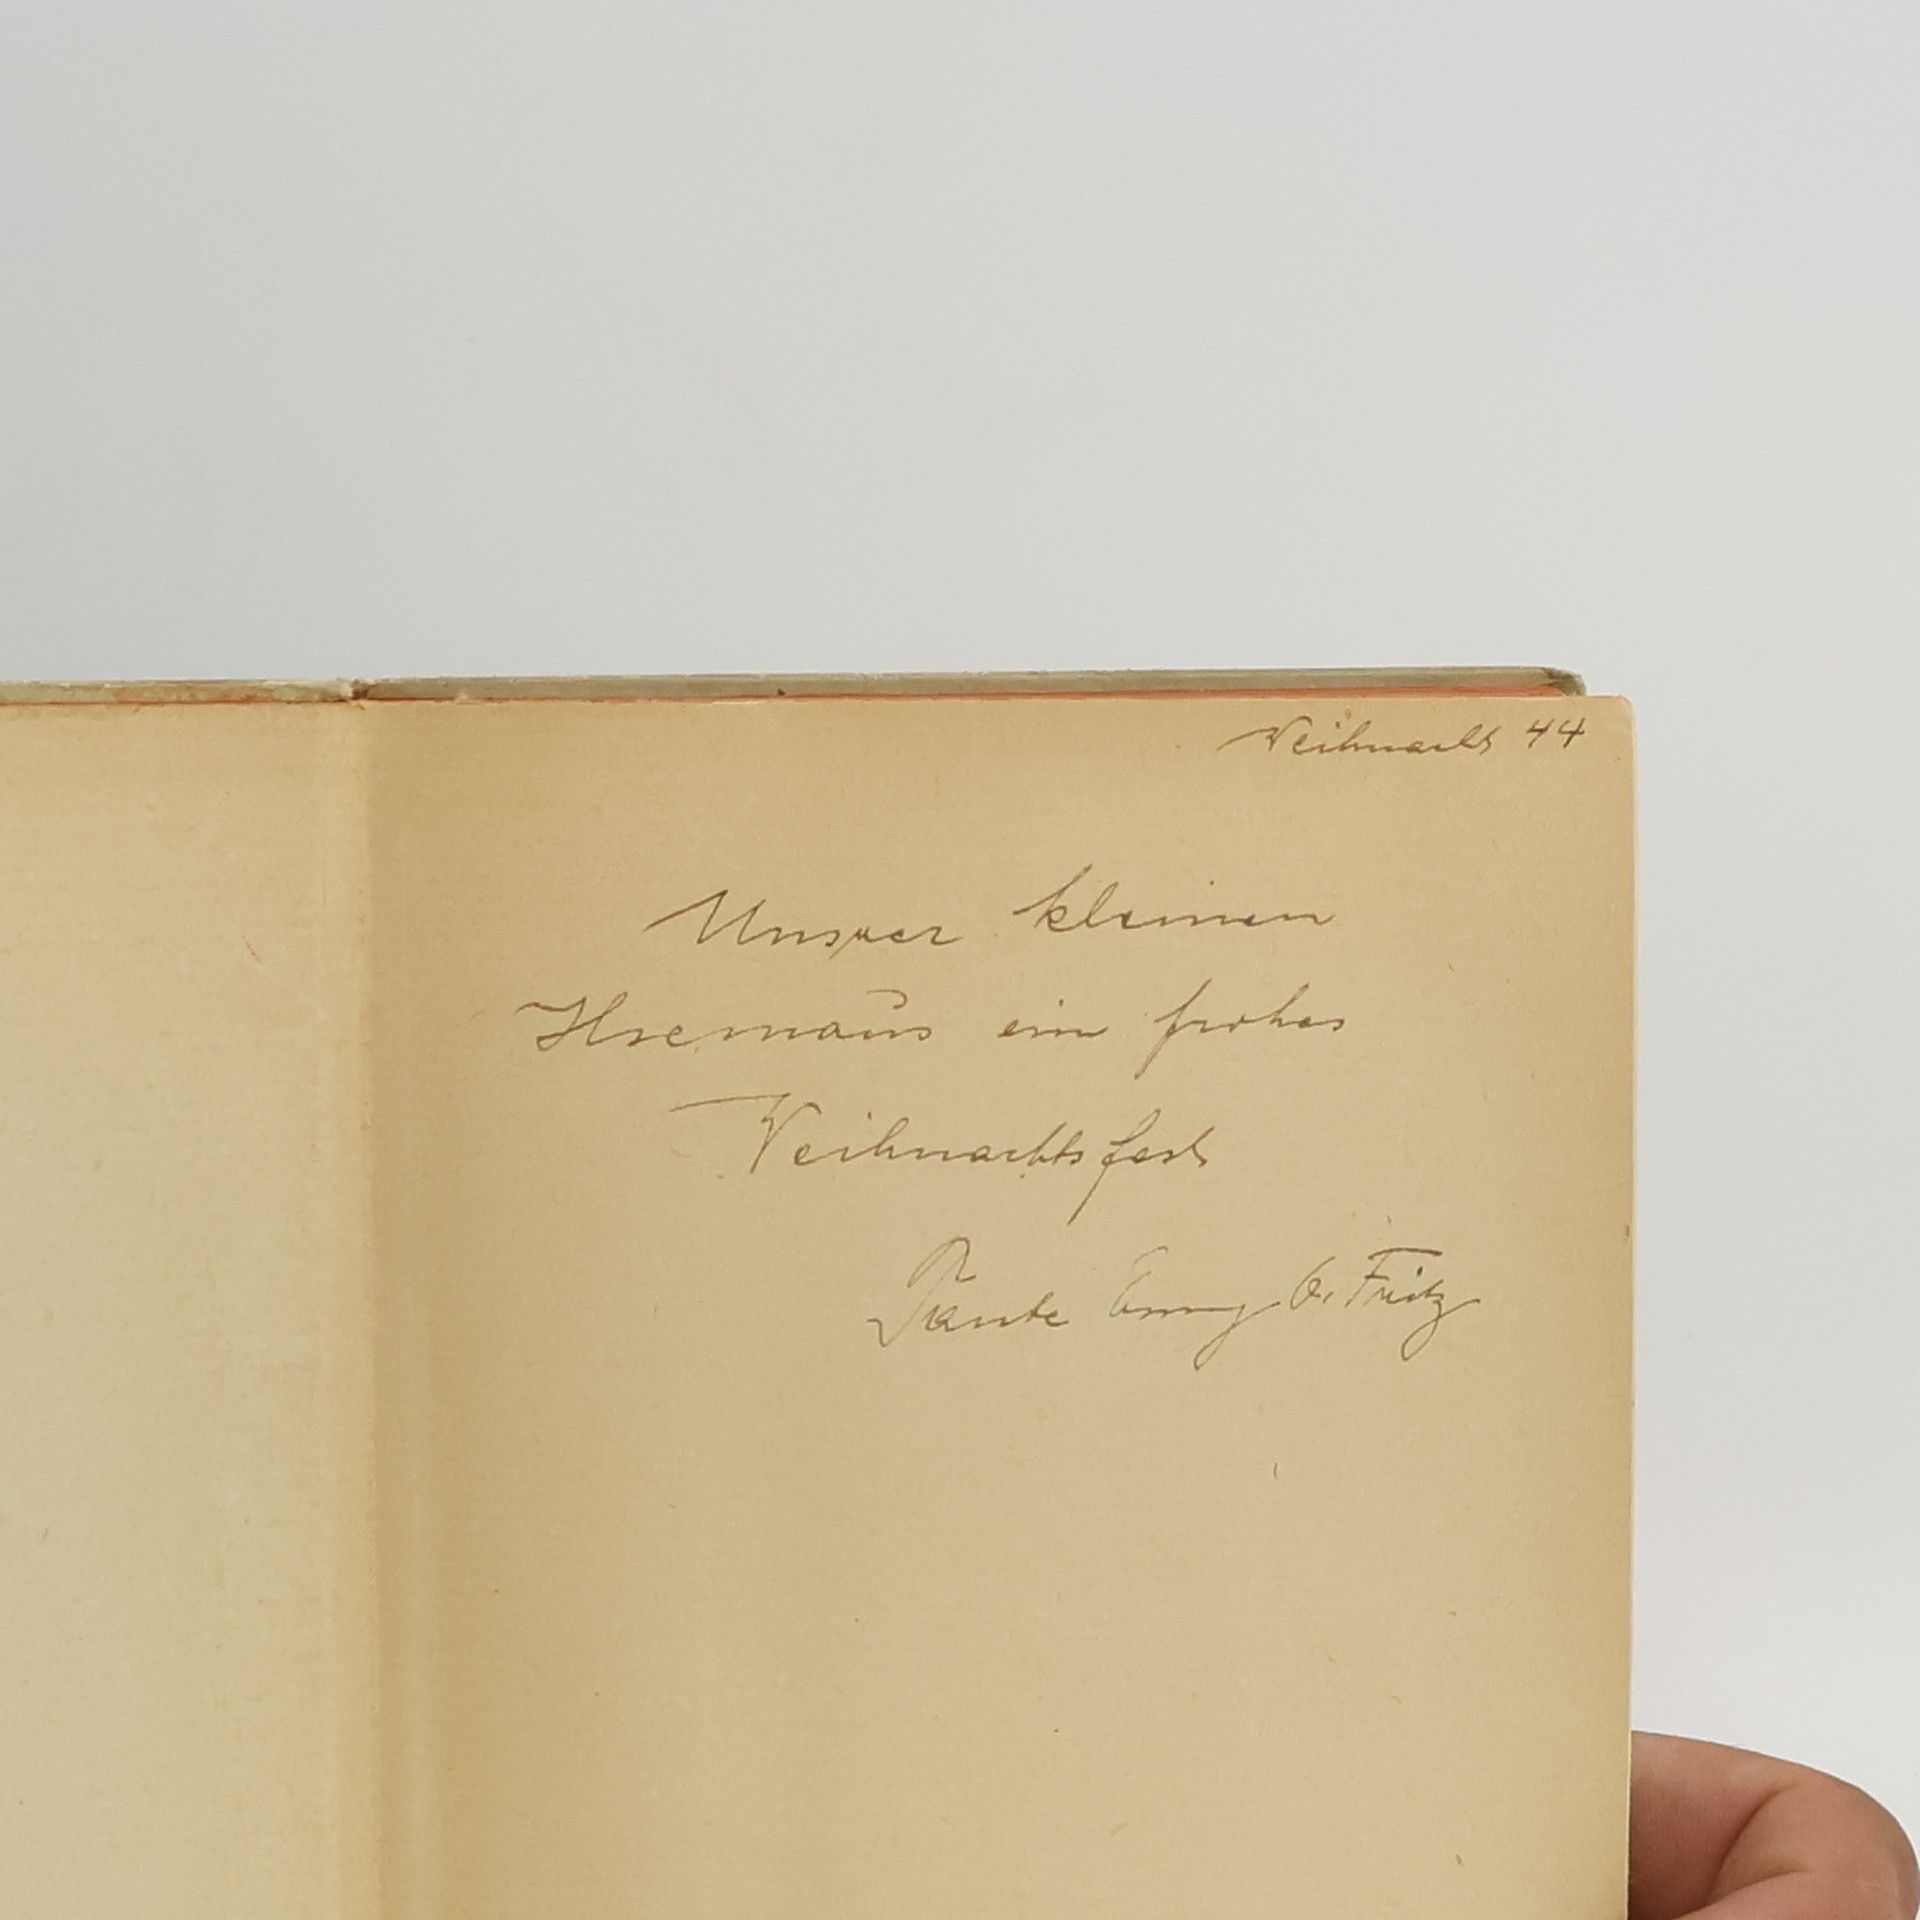 Weihnacht 44
Unserer kleinen
Ilsemaus ein frohes
Weihnachtsfest
Tante Emmy O. Fritz